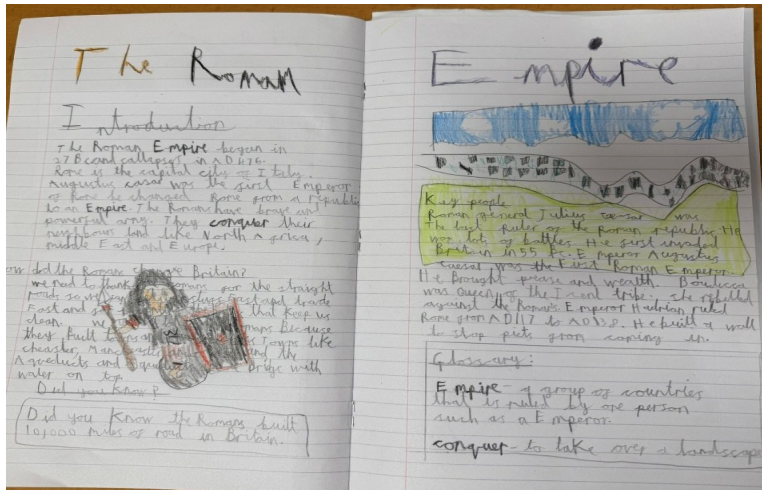 The Roman
Introduction
The Roman Empire began in
27 BC and collapsed in AD 476.
Rome is the capital city of Italy.
Augustus casar was the first Emperor
of Rome he changed Rome from a republic
to an Empire. The Romans have brave and
powerful army. They conquer their
neighbours land like North Africa,
middle East and Europe.
did the Romans Britain?
we need to thank for the straight
roads so we and trade
Fast and that keep us
clean. we because
they built Towns like
chester, Manchester and the
Aqueducts and Bridge with
water on top.
Did you know?
Did you know the Romans built
10,000 miles of road in Britain.
Empire
Key people
Roman general Julius ceasar was
The last ruler of the Roman republic. He
won lots of battles. He first invaded
Britain in 55 BC. Emperor Augustus
caesar was the First Roman Emperor.
He brought peace and wealth. Boudicca
was Queen of the Iceni tribe. she rebelled
against the Romans. Emperor Hadrian ruled
Rome from AD117 to AD138. He built a wall
to stop picts from coming in.
Glossary:
Empire - a group of countries
that is ruled by one person
such as a Emperor.
conquer - to take over a landscape